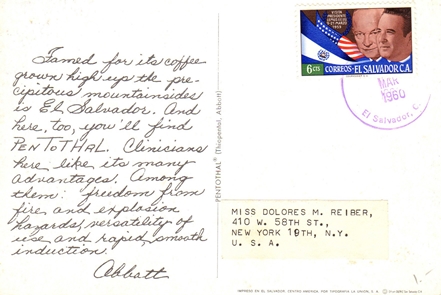 Famed for its coffee
grown high up the pre-
cipitous mountainsides
is El Salvador. And
here, too, you'll find
PENTOTHAL. Clinicians
here like its many
advantages. Among
them: freedom from
fire and explosion
hazards, versatility of
use and rapid, smooth
induction.
Abbott
PENTOTHAL® (Thiopental, Abbott)
VISITA
PRESIDENTE
1959
6 CTS CORREOS-EL SALVADOR C.A.
MAR
1960
El Salvador, C.
MISS DOLORES M. REIBER,
410 W. 58TH ST.,
NEW YORK 19TH, N.Y.
U. S. A.
IMPRESO EN EL SALVADOR, CENTRO AMERICA, POR TIPOGRAFIA LA UNION, S. A.